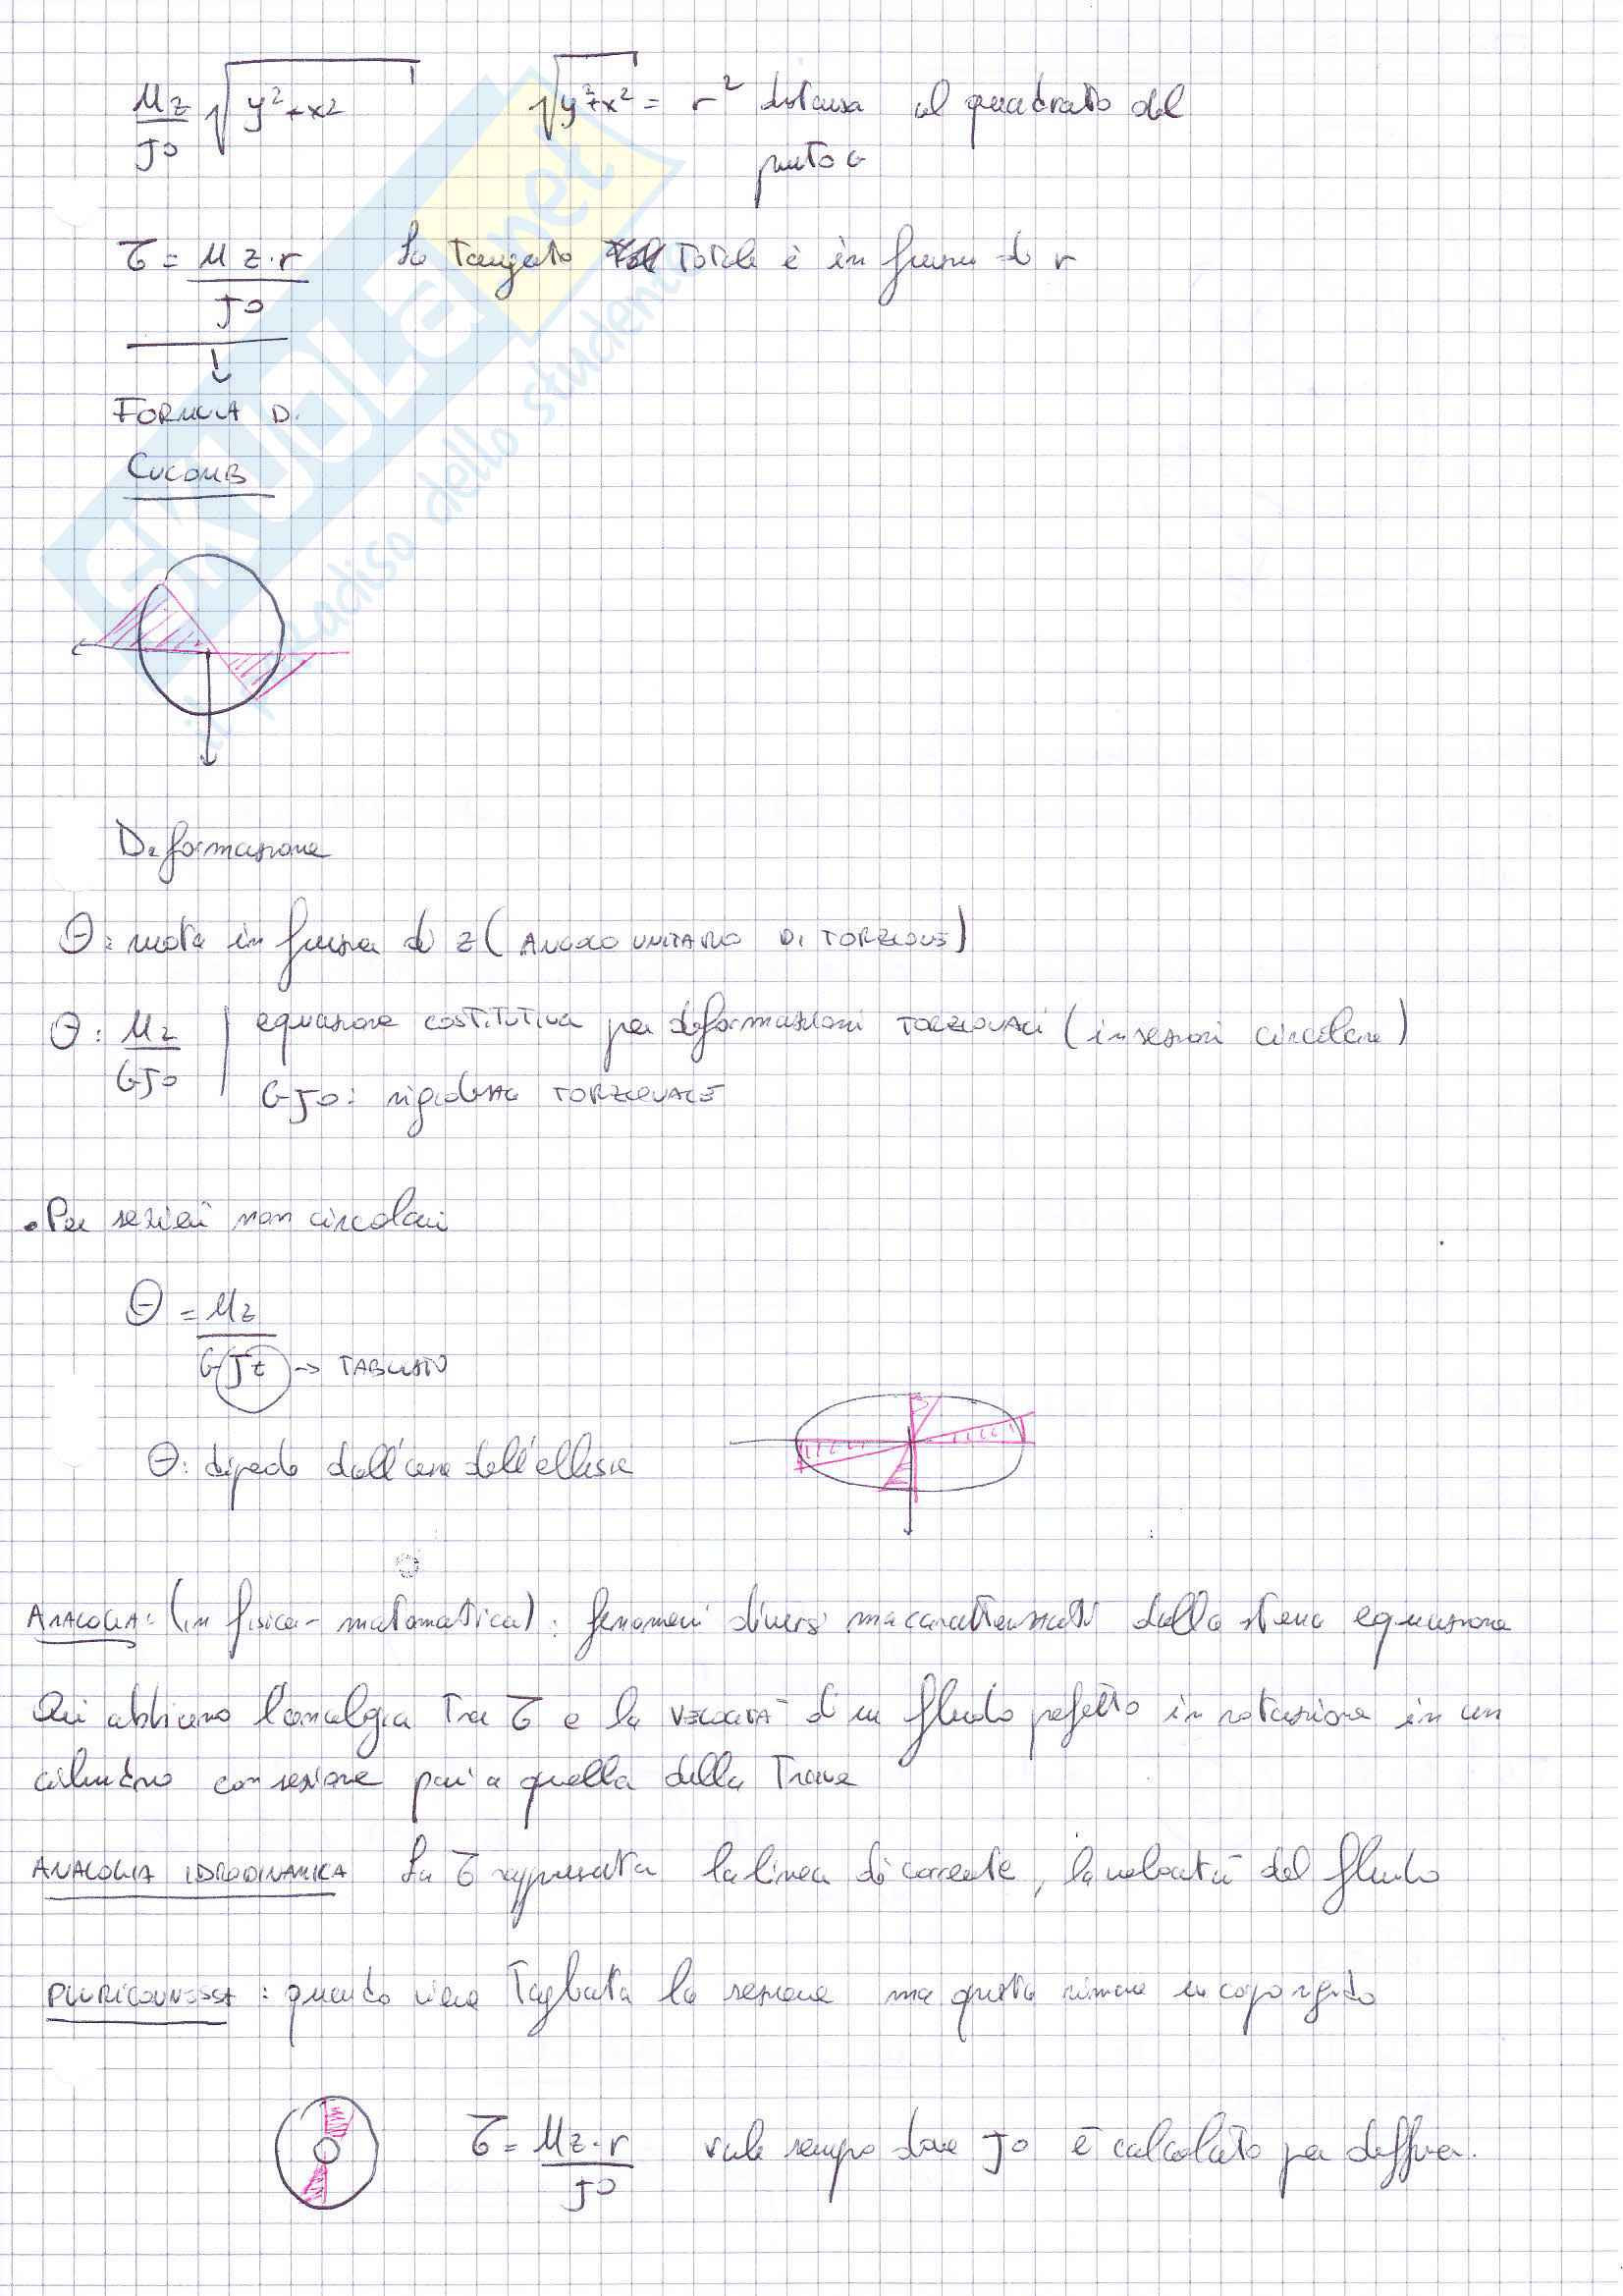 Mz/J0 √y²+x²   √y²+x² = r² distanza al quadrato dal
punto G
τ = Mz·r/J0   La tangente totale è in funzione di r
↓
FORMULA DI
CUCOMB
Deformazione
θ: ruota in funzione di z (ANGOLO UNITARIO DI TORZIONE)
θ: Mz/GJ0 | equazione COSTITUTIVA per deformazioni TORZIONALI (in sezioni circolare)
GJ0: rigidezza TORZIONALE
• Per sezioni non circolari
θ = Mz/GJt → TABULATO
θ: dipende dall'area dell'ellisse
ANALOGIA: (in fisica - matematica): fenomeni diversi ma caratterizzati dalla stessa equazione
Qui abbiamo l'analogia Tra τ e la VELOCITÀ di un fluido perfetto in rotazione in un
cilindro con sezione pari a quella della Trave
ANALOGIA IDRODINAMICA   La τ rappresenta la linea di corrente, la velocità del fluido
PLURICONNESSA: quando viene Tagliata la sezione ma questa rimane un corpo rigido
τ = Mz·r/J0   vale sempre dove J0 è calcolato per differ.
skuola.net
il paradiso dello studente